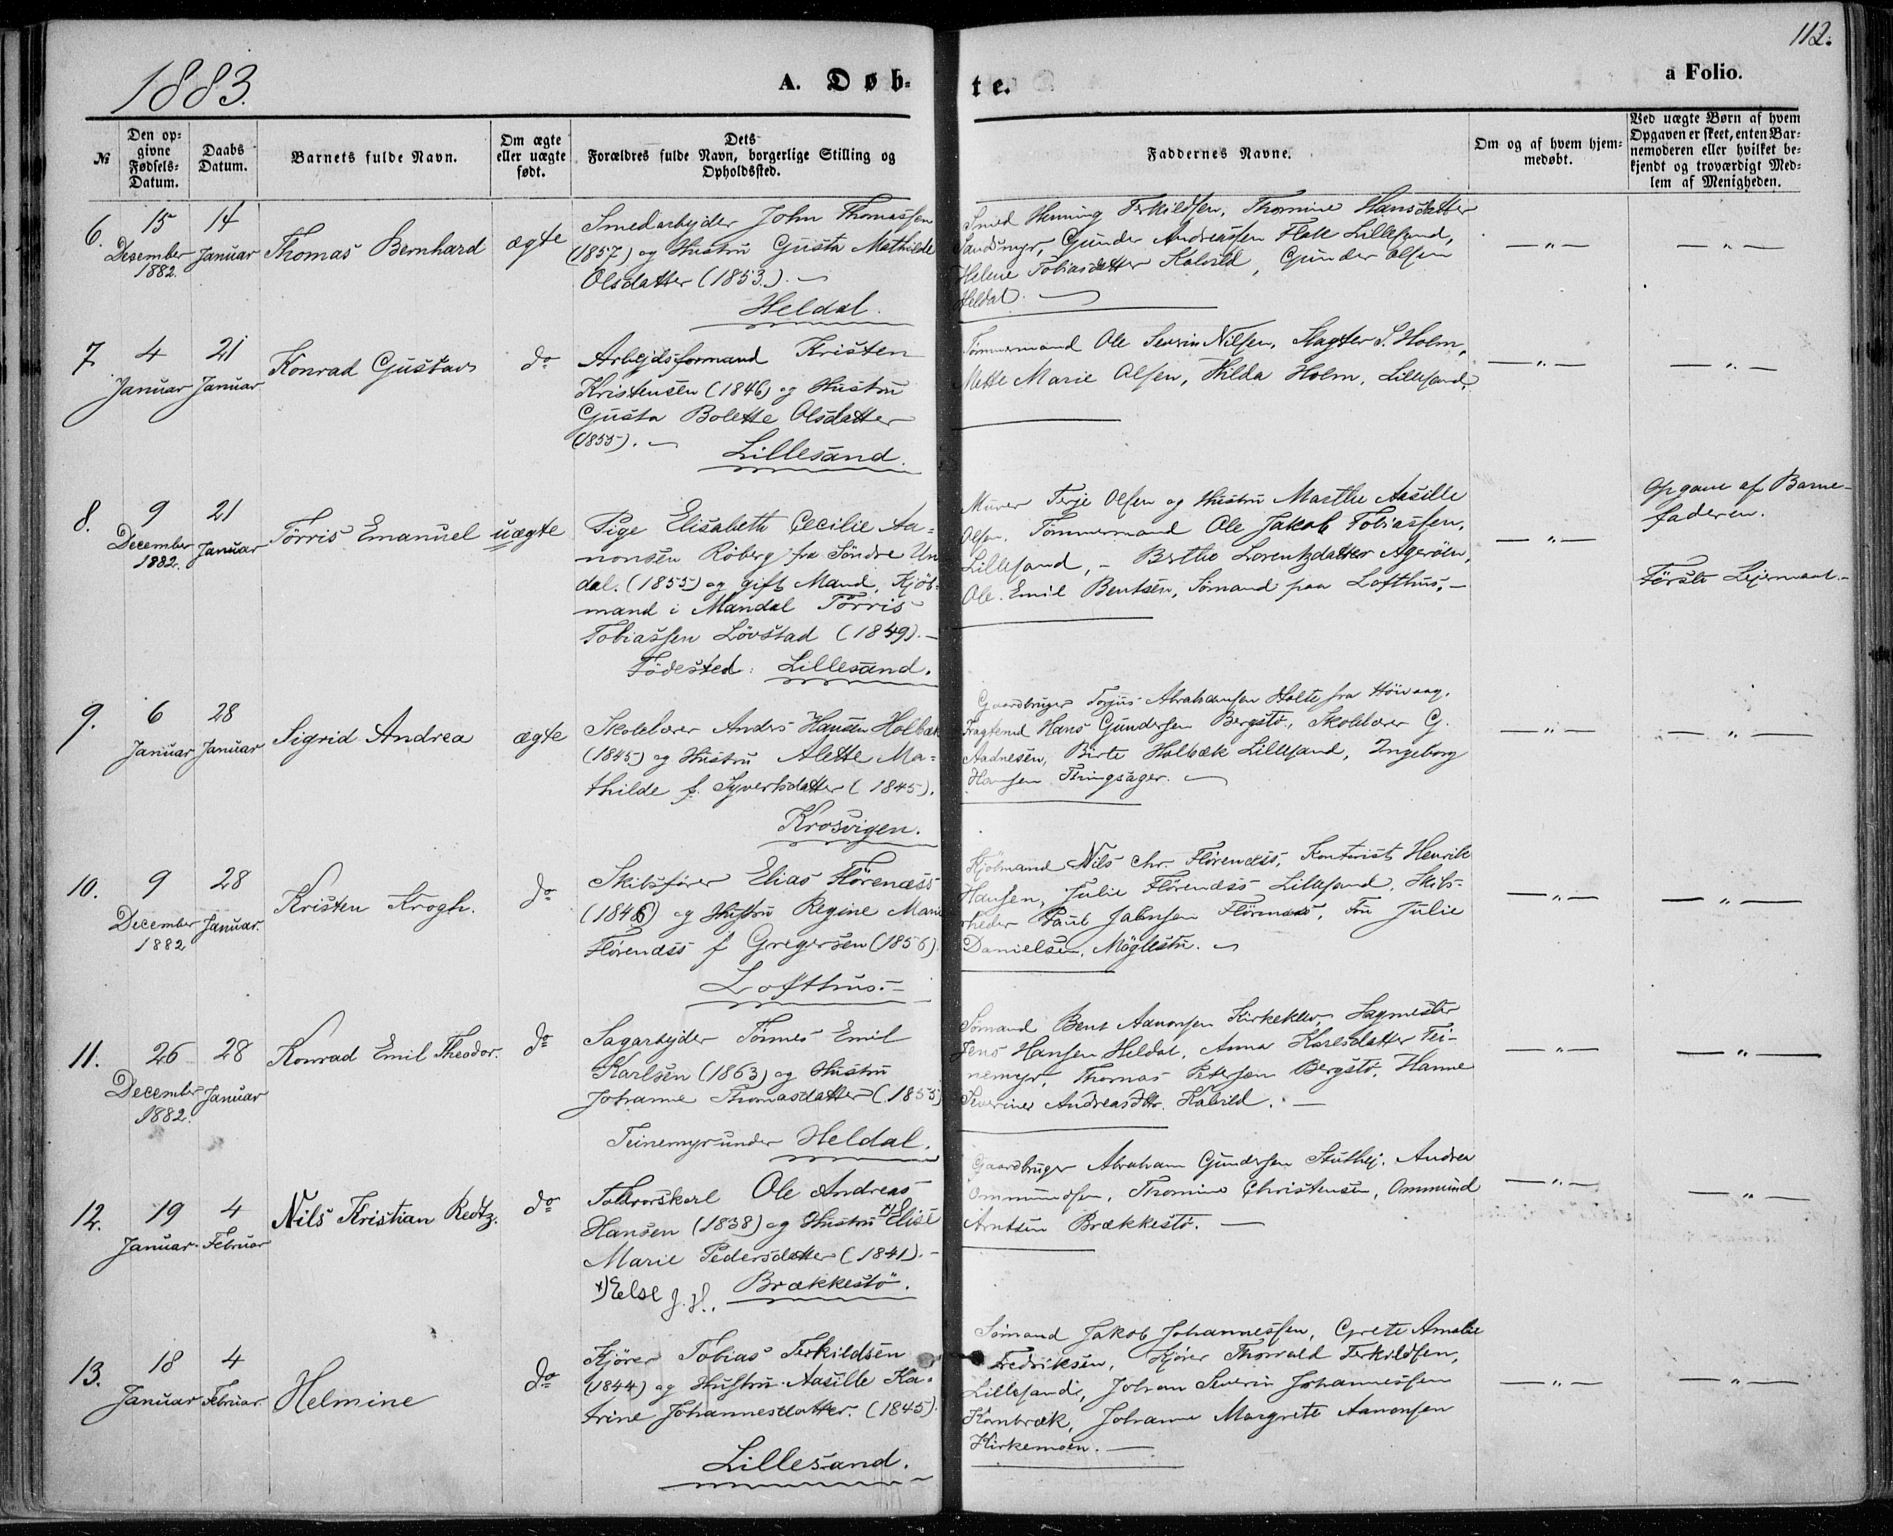 112.
1883.
A. Døbte.
a Folio.
№
Den opgivne Fødsels-Datum.
Daabs Datum.
Barnets fulde Navn.
Om ægte eller uægte født.
Dets Forældres fulde Navn, borgerlige Stilling og Opholdssted.
Faddernes Navne.
Om og af hvem hjemmedøbt.
Ved uægte Børn af hvem Opgaven er skeet, enten Barnemoderen eller hvilket bekjendt og troværdigt Medlem af Menigheden.
6.
15 Desember 1882.
14 Januar
Thomas Bernhard
ægte
Smedarbejder John Thomassen
(1857) og Hustru Gusta Mathilde
Olsdatter (1853.). –
Heldal.
Smed Henning Terkildsen, Thomine Hansdatter
Sandsmyr, Gunder Andreassen Flak Lillesand,
Helene Tobiasdatter Kalvild, Gunder Olsen
Heldal.
— „ —
— „ —
7.
4 Januar
21 Januar
Konrad Gustav
do
Arbejdsformand Kristen
Kristensen (1846) og Hustru
Gusta Bolette Olsdatter
(1855). –
Lillesand.
Tømmermand Ole Severin Nilsen, Slagter S. Holm,
Mette Marie Olsen, Hilda Holm, Lillesand.
— „ —
— „ —
8.
9 December 1882.
21 Januar
Tørris Emanuel
uægte
Pige Elisabeth Cecilie Aa-
nonsen Røberg fra Søndre Un
dal. (1855) og gift Mand, Kjøb-
mand i Mandal Tørris
Tobiassen Løvstad (1849). –
Fødested: Lillesand.
Murer Terje Olsen og Hustru Marthe Aasille
Olsen, Tømmermand Ole Jakob Tobiassen,
Lillesand, – Berthe Lorentzdatter Agerøen,
Ole Emil Bentsen, Sømand paa Lofthus, –
— „ —
Opgave af Barne-
faderen.
Første Lejermaal. –
9.
6 Januar
28 Januar
Sigrid Andrea
ægte
Skolelærer Andrs Hansen Holbæk
(1845) og Hustru Alette Ma-
thilde f. Syvertsdatter (1845).
Krosvigen.
Gaardbruger Torjus Abrahamsen Holte fra Høivaag.
Fragtemd Hans Gundersen Bergstø, Skolelærer G.
Aadnesen, Birte Holbæk Lillesand, Ingeborg
Hansen Thingsager. –
— „ —
— „ —
10.
9 December 1882
28 Januar.
Kristen Krogh.
do
Skibsfører Elias Flørenæss
(1846) og Hustru Regine Marie
Flørenæss f Gregersen (1856).
Lofthus. –
Kjøbmand Nils Chr. Flørenæss, Kontorist Henrik
Hansen, Julie Flørenæss Lillesand, Skibs-
rheder Paul Jahnsen Flørenæs, Fru Julie
Danielsen, Møglestu. –
— „ —
— „ —
11.
26 December 1882.
28 Januar
Konrad Emil Theodor.
do
Sagarbejder Tønnes Emil
Karlsen (1863) og Hustru
Johanne Thomasdatter (1855)
Teinemyr under Heldal.
Sømand Bent Aanonsen Kirkeklev, Sagmester
Jens Hansen Heldal, Anna Karlsdatter Tei-
nemyr, Thomas Petersen Bergstø, Hanne
Severine Andreasdtr. Kalvild. –
— „ —
— „ —
12.
19 Januar.
4 Februar
Nils Kristian Reetz.
do
Toldrorskarl Ole Andreas
Hansen (1838) og Hustru x) Elise
Marie Pedersdatter (1841). –
x) Else J. H. Brækkestø.
Gaardbruger Abraham Gundersen Stuthej. Andrea
Ommundsen, Thomine Christensen, Ommund
Arntsen Brækkestø. –
— „ —
— „ —
13.
18 Januar
4 Februar.
Helmine
do
Kjører Tobias Terkildsen
(1844) og Hustru Aasille Ka-
trine Johannesdatter. (1845).
Lillesand.
Sømand Jakob Johannessen, Grete Amalie
Fredriksen, Kjører Thorvald Terkildsen,
Lillesand, Johan Severin Johannessen
Kornbræk, Johanne Margrete Aanonsen
Kirkemoen. –
— „ —
— „ —